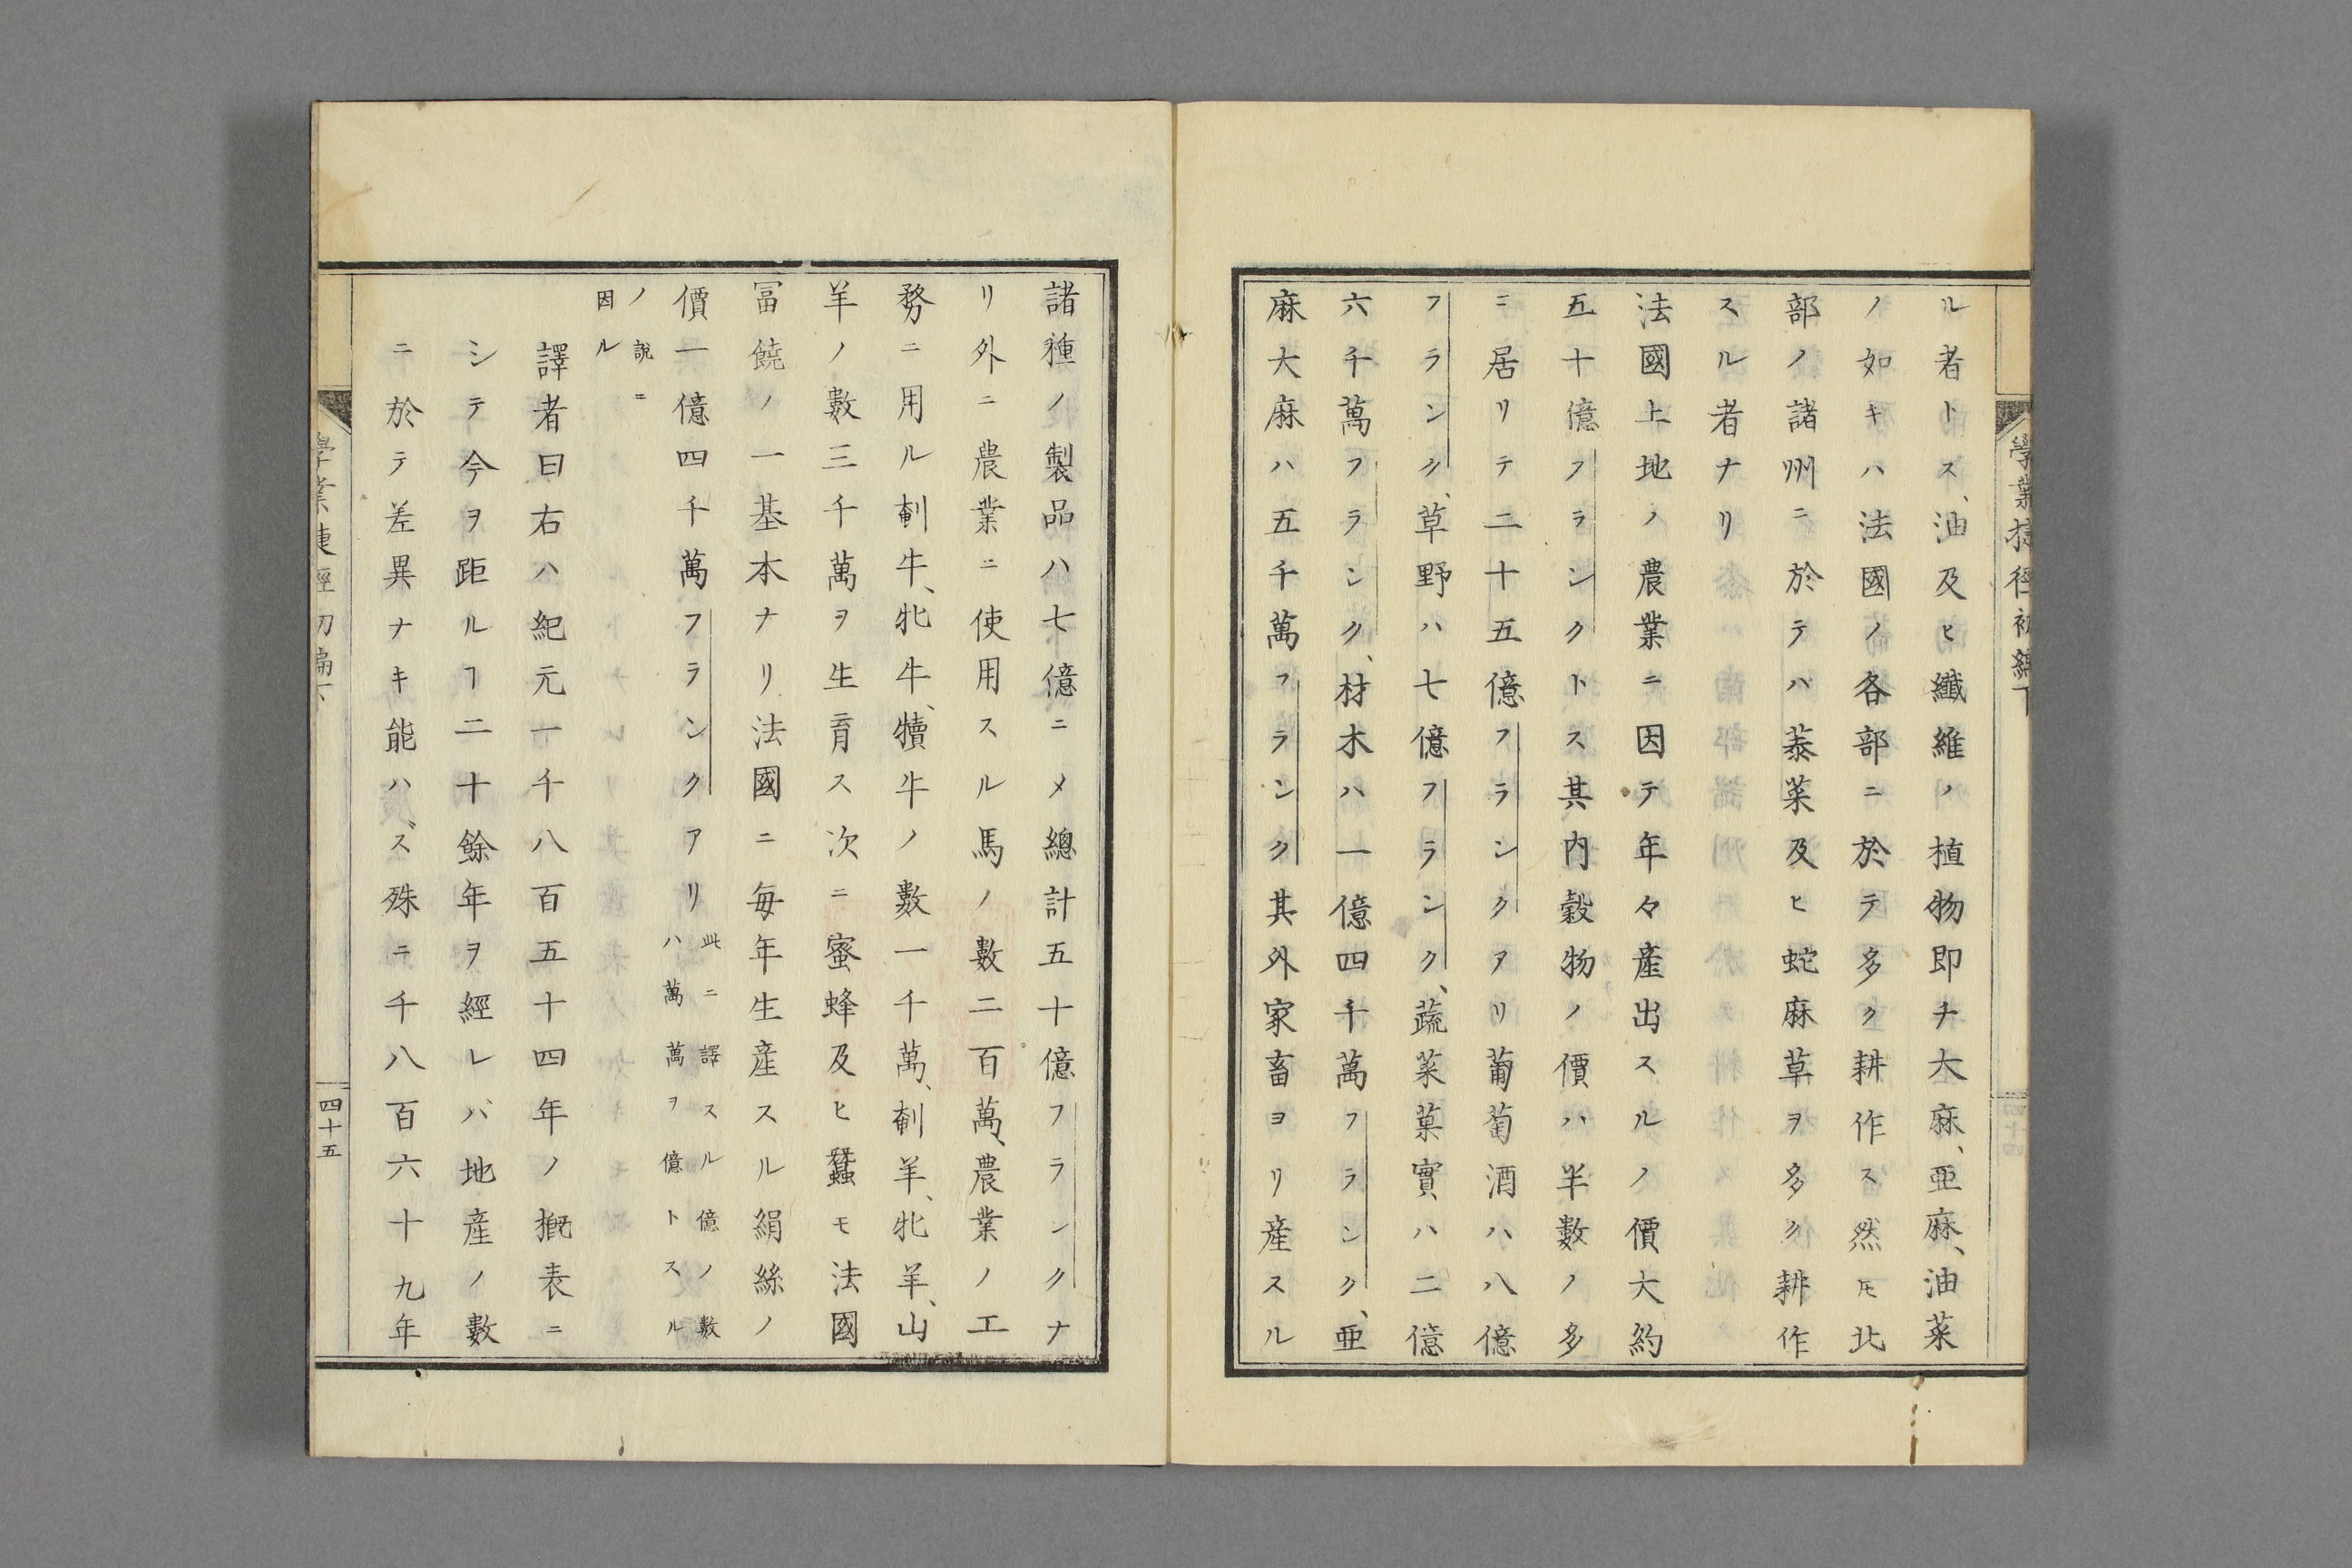 ル者トス、油及ヒ纖維ノ植物即チ大麻、亜麻、油菜
ノ如キハ法國ノ各部ニ於テ多ク耕作ス然𪜈北
部ノ諸州ニ於テハ菾菜及ヒ蛇麻草ヲ多ク耕作
スル者ナリ
法國上地ノ農業ニ因テ年々產出スルノ價大約
五十億フランクトス其内穀物ノ價ハ半數ノ多
ニ居リテ二十五億フランクアリ葡萄酒ハ八億
フランク、草野ハ七億フランク、蔬菜菓實ハ二億
六千萬フランク、材木ハ一億四千萬フランク、亜
麻大麻ハ五千萬フランク其外家畜ヨリ產スル
諸種ノ製品ハ七億ニメ總計五十億フランクナ
リ外ニ農業ニ使用スル馬ノ數二百萬、農業ノ工
務ニ用ル剦牛、牝牛、犢牛ノ數一千萬、剦羊、牝羊、山
羊ノ數三千萬ヲ生育ス次ニ蜜蜂及ヒ蠶モ法國
冨饒ノ一基本ナリ法國ニ每年生產スル絹絲ノ
價一億四千萬フランクアリ此ニ譯スル億ノ數
ハ萬萬ヲ億トスル
ノ說ニ
因ル
譯者曰右ハ紀元一千八百五十四年ノ概表ニ
シテ今ヲ距ルヿ二十餘年ヲ經レバ地產ノ數
ニ於テ差異ナキ能ハズ殊ニ千八百六十九年
四十五